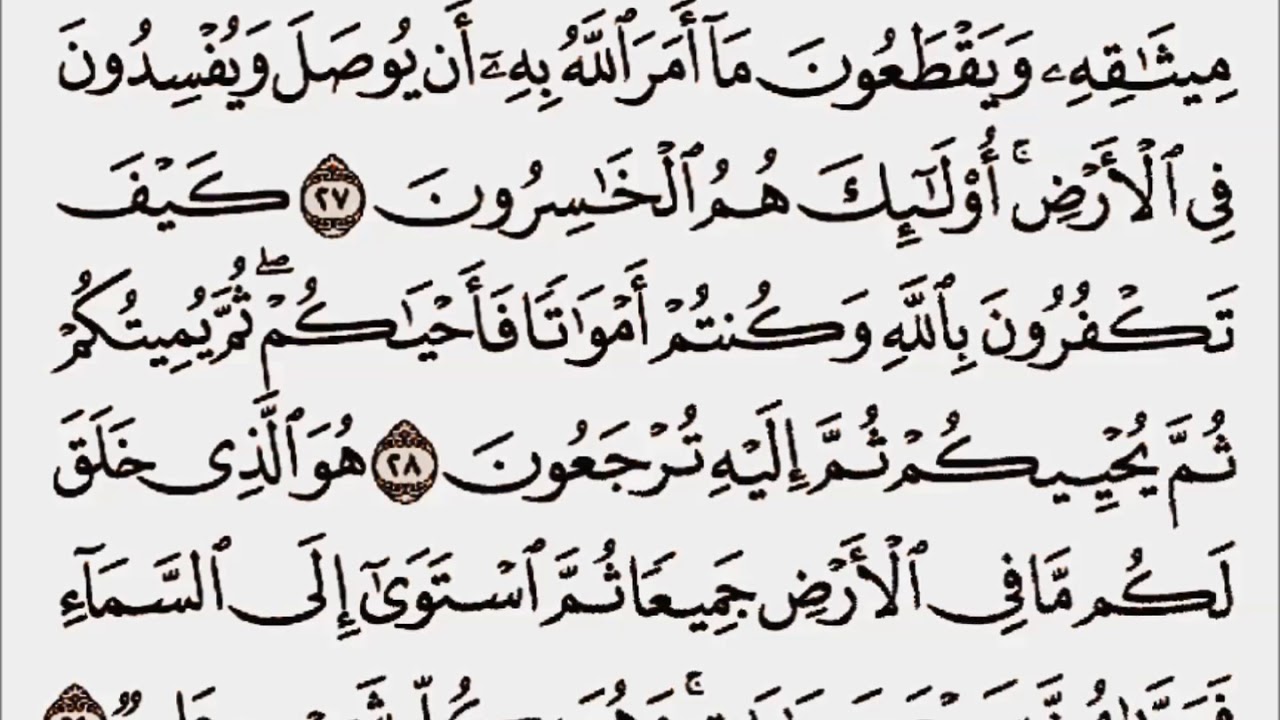 مِيثَٰقِهِۦ وَيَقْطَعُونَ مَآ أَمَرَ ٱللَّهُ بِهِۦٓ أَن يُوصَلَ وَيُفْسِدُونَ
فِي ٱلْأَرْضِ ۚ أُوْلَٰٓئِكَ هُمُ ٱلْخَٰسِرُونَ ٢٧ كَيْفَ
تَكْفُرُونَ بِٱللَّهِ وَكُنتُمْ أَمْوَٰتًا فَأَحْيَٰكُمْ ۖ ثُمَّ يُمِيتُكُمْ
ثُمَّ يُحْيِيكُمْ ثُمَّ إِلَيْهِ تُرْجَعُونَ ٢٨ هُوَ ٱلَّذِى خَلَقَ
لَكُم مَّا فِى ٱلْأَرْضِ جَمِيعًا ثُمَّ ٱسْتَوَىٰٓ إِلَى ٱلسَّمَآءِ